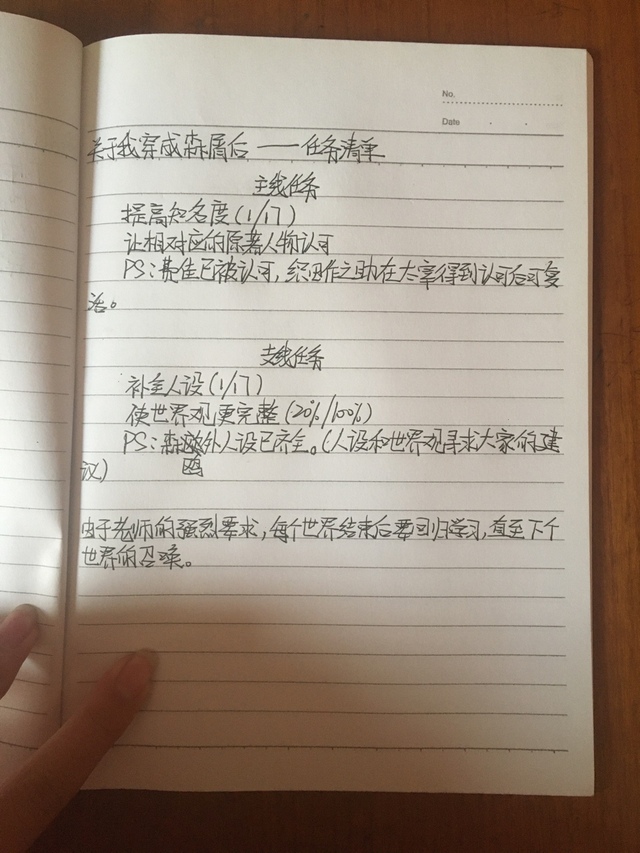 No.
Date
关于我穿成森屑后——任务清单
主线任务
提高知名度(1/17)
让相对应的原著人物认可
PS:费佳已被认可,织田作之助在太宰得到认可后可复
活。
支线任务
补全人设(1/17)
使世界观更完整(20%/100%)
PS:森鸥外人设已齐全。(人设和世界观寻求大家的建
议)
由于老师的强烈要求,每个世界结束后要回归学习,直至下个
世界的召唤。